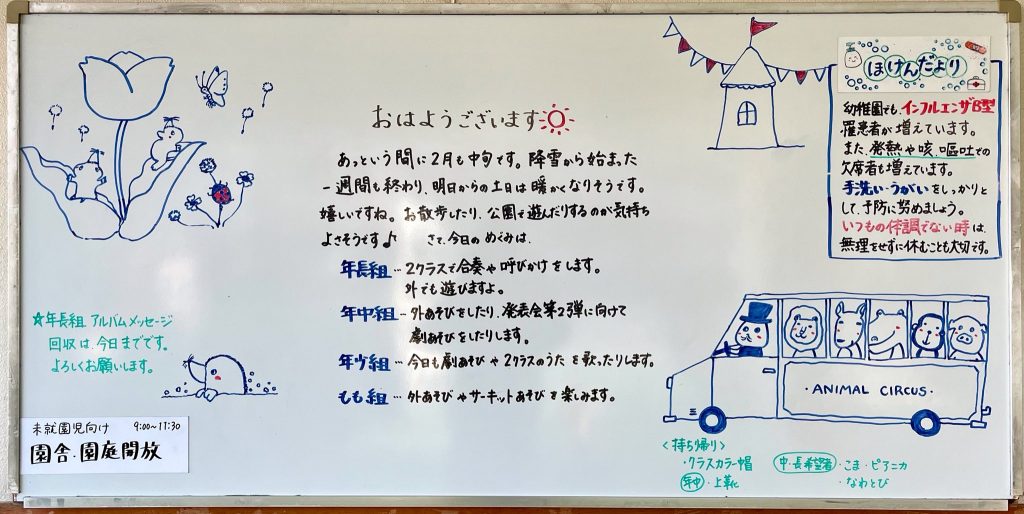 おはようございます
あっという間に2月も中旬です。降雪から始まった
一週間も終わり、明日からの土日は暖かくなりそうです。
嬉しいですね。お散歩したり、公園で遊んだりするのが気持ち
よさそうです♪ さて、今日のめぐみは、
年長組…2クラスで合奏や呼びかけをします。
外でも遊びますよ。
年中組…外あそびをしたり、発表会第2弾に向けて
劇あそびをしたりします。
年少組…今日も劇あそびや2クラスのうたを歌ったりします。
もも組…外あそびやサーキットあそびを楽しみます。
☆年長組 アルバムメッセージ
回収は、今日までです。
よろしくお願いします。
未就園児向け 9:00~11:30
園舎・園庭開放
ほけんだより
幼稚園でも、インフルエンザB型
罹患者が増えています。
また、発熱や咳、嘔吐での
欠席者も増えています。
手洗い・うがいをしっかりと
して、予防に努めましょう。
いつもの体調でない時は、
無理をせずに休むことも大切です。
・ANIMAL CIRCUS・
<持ち帰り>
・クラスカラー帽
年中・上靴
中・長希望者・こま・ピアニカ
・なわとび